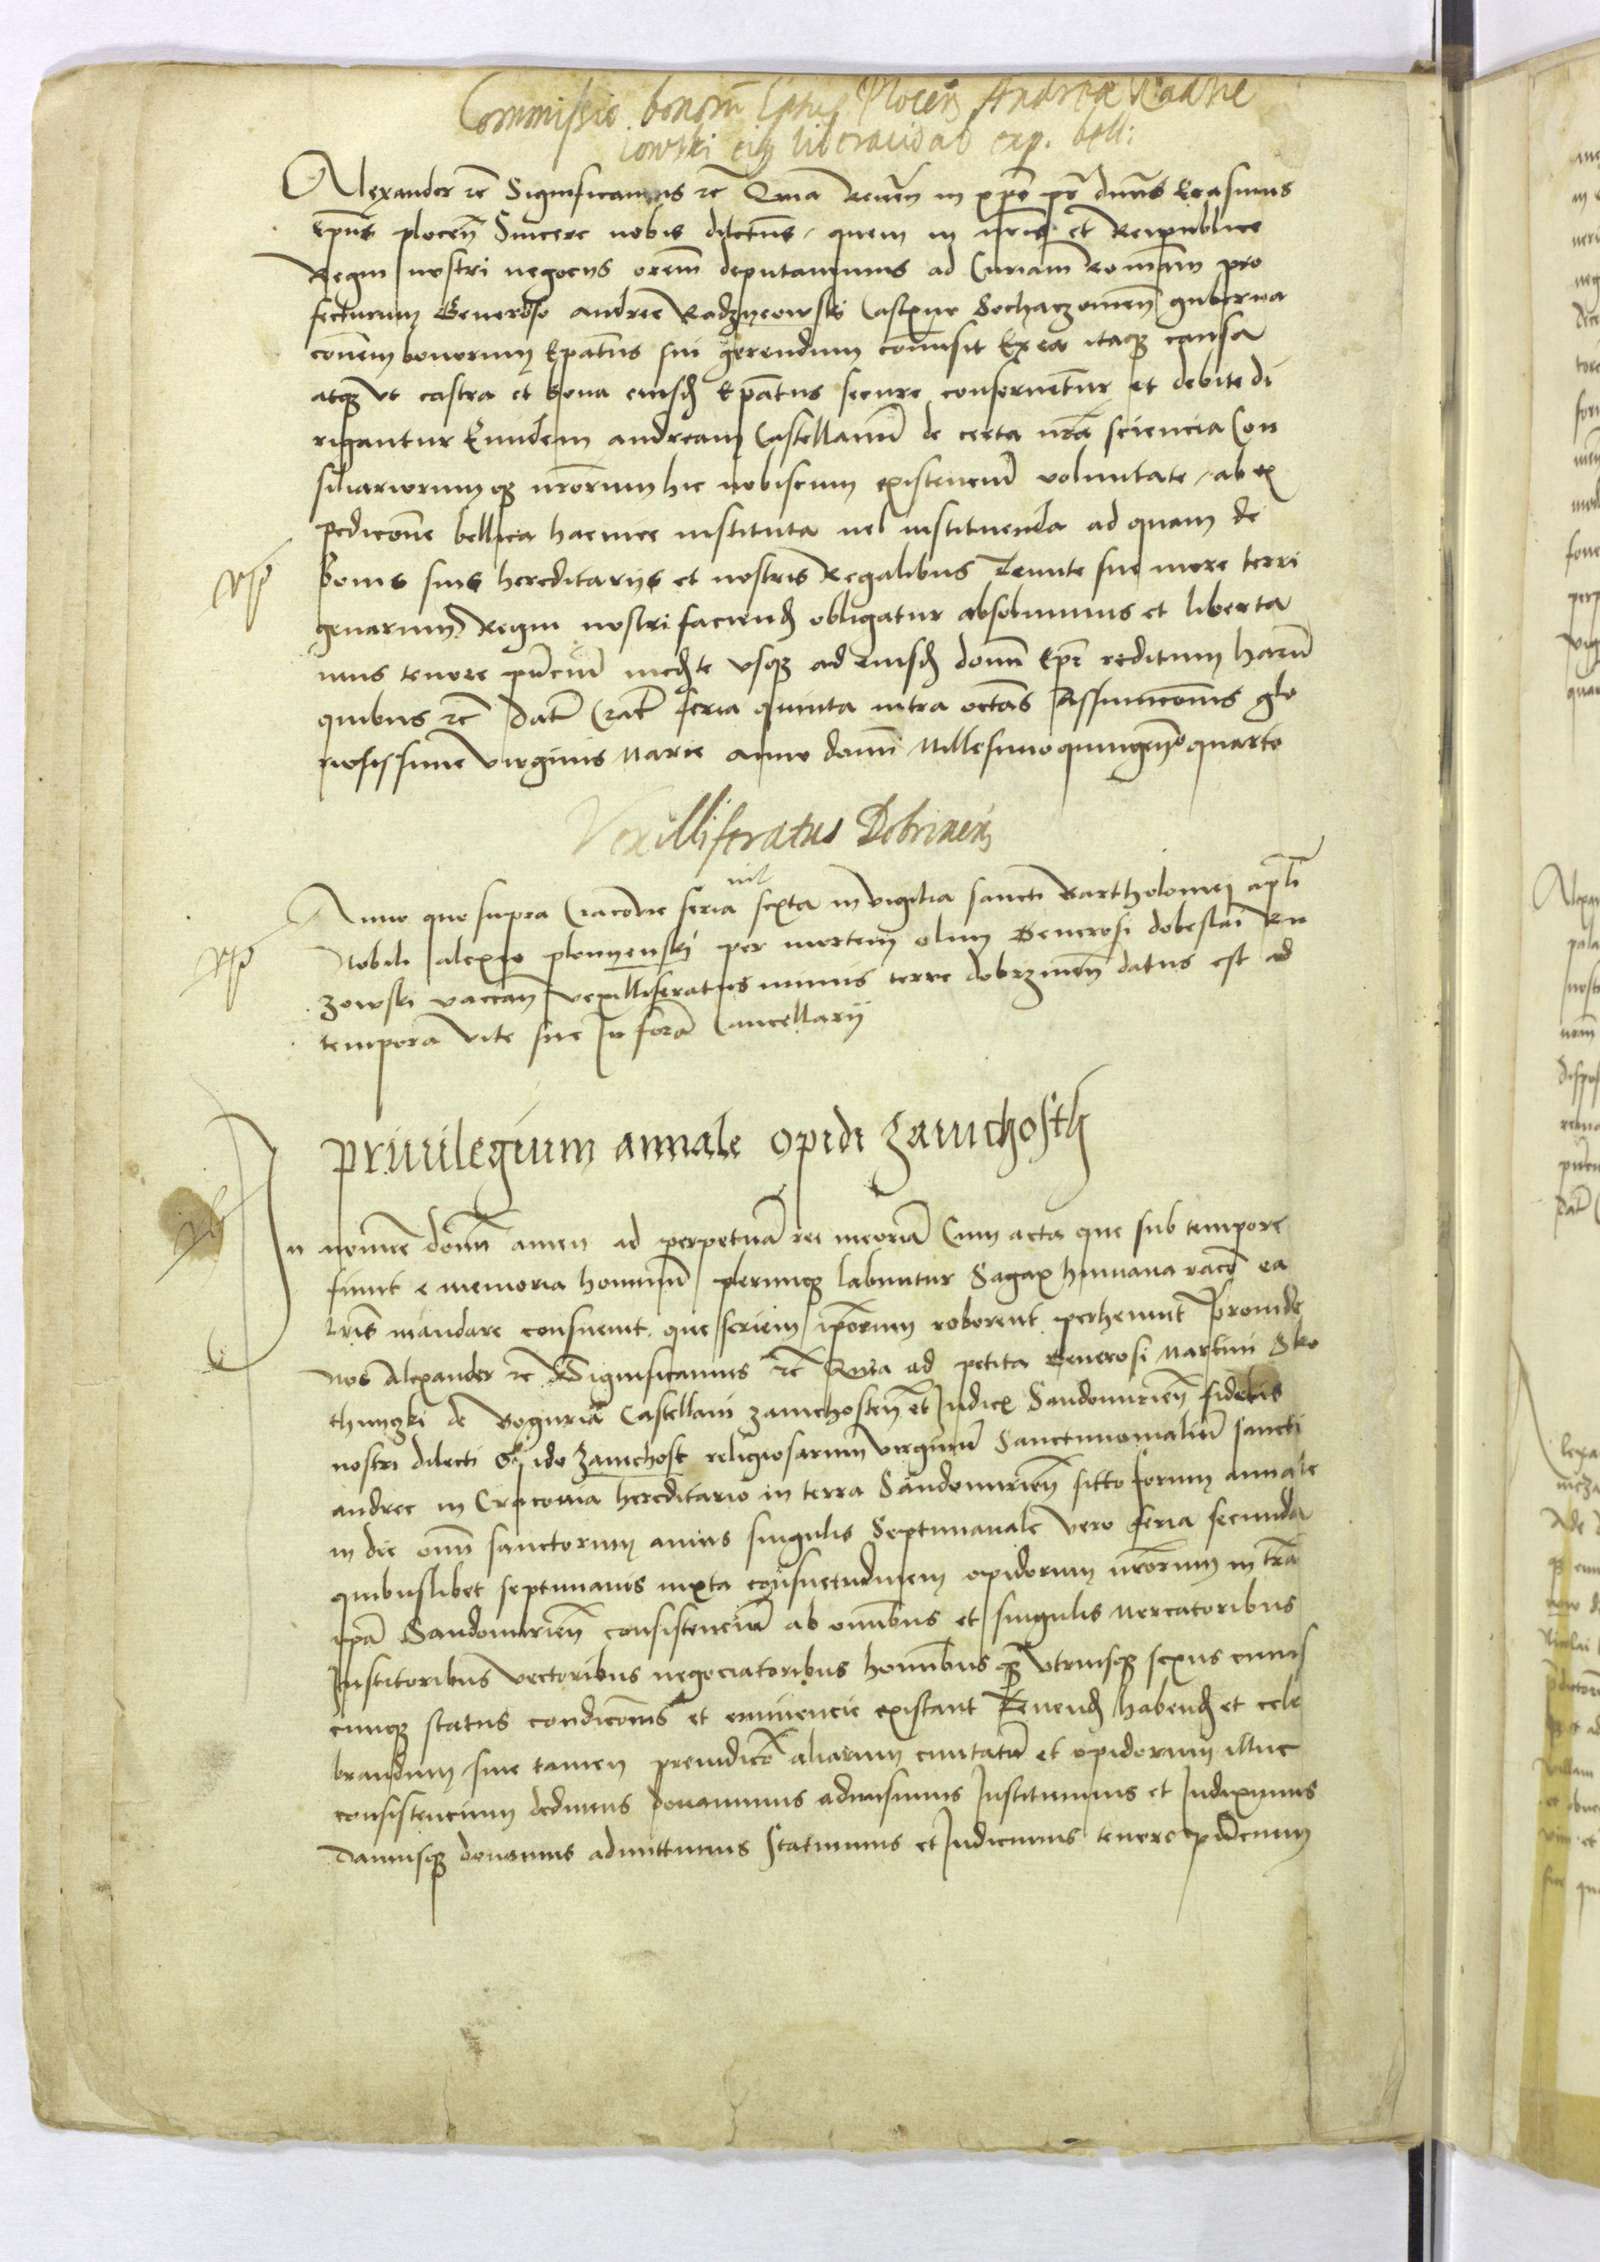 Commissio bonorũ Epatus Plocen̄ Andreæ Radzie
iowski eiusq liberatio ab exp. bell:
Alexander ꝛc Significamus ꝛc Quia Reuen̄ in xp̄o pr̄ dn̄us Erasmus
Ep̄us plocen̄ Sincere nobis dilectus, quem in nr̄is et Reipublice
Regni nostri negocys orem̄ deputauimus ad Curiam Romam̄ pro
fecturum Generoso andree Radzyeowski Castn̄o Sochaczowien̄ guberna
conem̄ bonorum Ep̄atus sui gerendum com̄isit Ex ea itaqꝫ causa
atqꝫ vt castra et bona eiusd̄ Ep̄atus secure conseruent̄ur et debite di
rigantur Eundem andream Castellanū de certa nr̄a sciencia Con
siliariorumqꝫ nr̄orum hic nobiscum existenciū voluntate, ab ex
pedicōne bellica hactinee instituta uel instituenda ad quam de
bonis suis hereditarijs et nostris Regalibus Tenute sue more terri
genarum Regni nostri faciend̄ obligatur absoluimus et liberta
mus tenore pn̄ciū med̄te vsqꝫ ad eiusd̄ domī Ep̄i reditum harū
quibus ꝛc Dat̄ Crac̄ feria quinta intra octas̄ Assumcōnis glo
riosissime virginis Marie anno domī Millesimo quingen̄o quarto
Vexilliferatus Dobrinen̄
Anno quo supra Cracouie feria sexta in vigilia sancti Bartholomei apl̄i
Nobili alexio plomyenski per mortem olim Generosi dobeslai Ru
zowski vaccan̄ vexilliferatus minus terre dobrzinen̄ datus est ad
tempora vite sue In forā Cancellarij
Priuilegium annale opidi Zawichosth
In nomīe domī amen ad perpetuā rei meoriā Cum acta que sub tempore
fiunt e memoria hominū plerumqꝫ labuntur Sagax humana racō ea
lr̄is mandare consueuit que seriem ip̄orum roborent perhennit̄ Proinde
nos Alexander ꝛc Significamus ꝛc Quia ad petita Generosi Martini Sko
thnyczki de Boguria Castellani zawichosten̄ et Iudicꝭ Sandomirien̄ fidelis
nostri dilecti Opido zawichost religiosarum virginū Sanctimonialiū sancti
andree in Cracouia hereditario in terra Sandomirien̄ sitto forum annale
in die om̄i sanctorum annis singulis Septimanale vero feria secunda
quibuslibet septimanis iuxta consuetudinem opidorum nr̄orum in tr̄a
ip̄a Sandomirien̄ consistenciū ab om̄ibus et singulis Mercatoribus
Institoribus vectoribus negociatoribus homībusqꝫ vtriusqꝫ sexus cuius
cunqꝫ status condicōnis et eminencie existant Tenend̄ habend̄ et cele
brandum sine tamen preiudicō aliarum ciuitatū et opidorum illuc
consistencium dedimus donauimus admisimus Instituimus et Indiximus
Damusqꝫ donamus admittimus Statuimus et Indicimus tenore pn̄cium